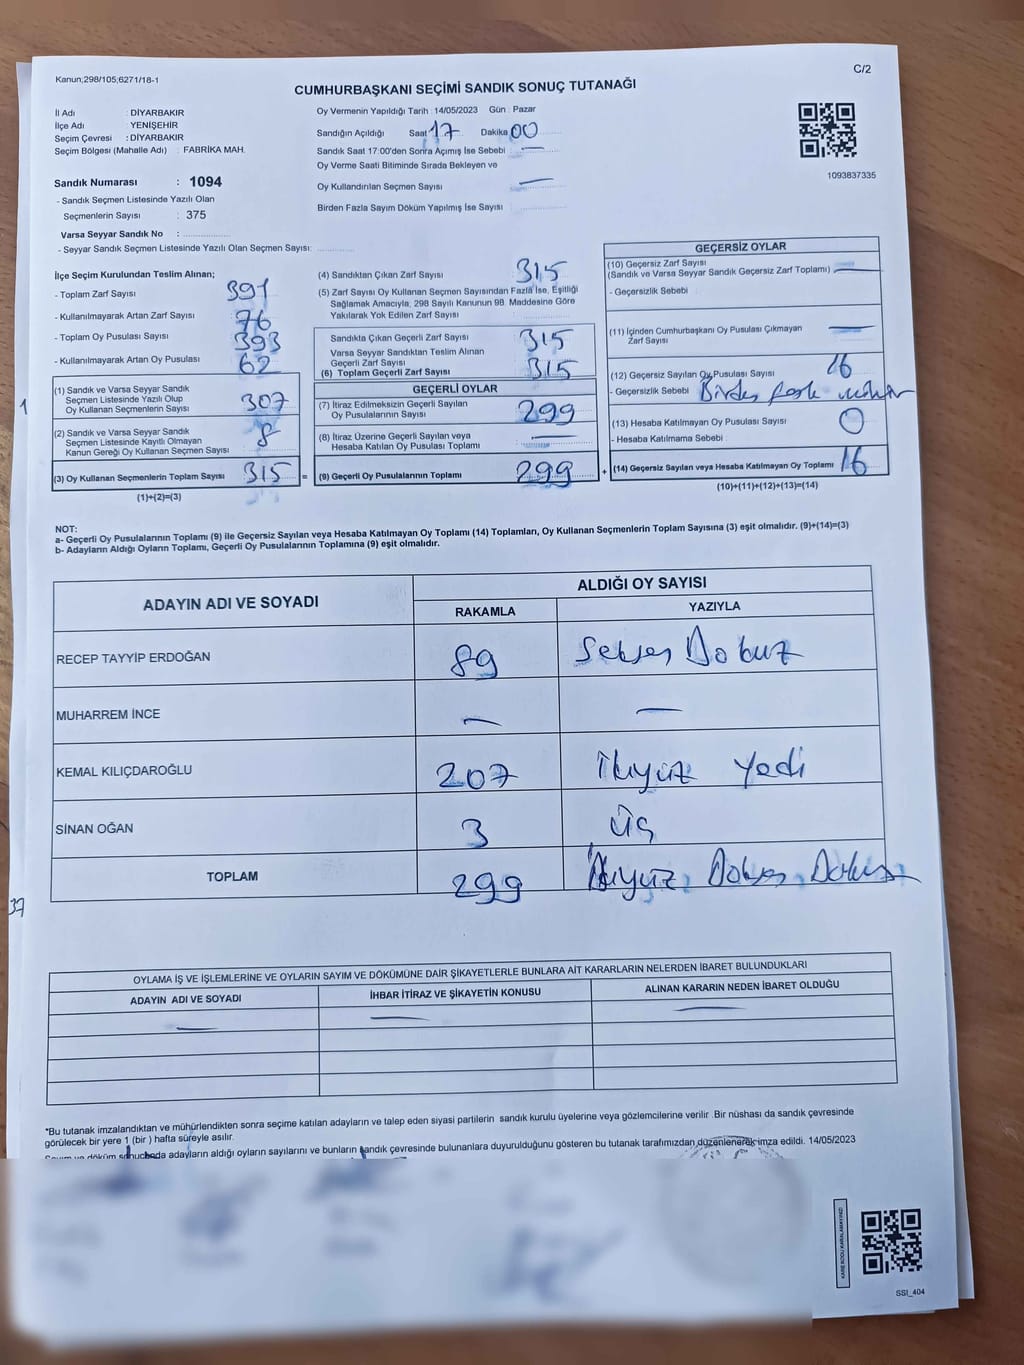 Kanun;298/105;6271/18-1
C/2
CUMHURBAŞKANI SEÇİMİ SANDIK SONUÇ TUTANAĞI
İl Adı : DİYARBAKIR
İlçe Adı : YENİŞEHİR
Seçim Çevresi : DİYARBAKIR
Seçim Bölgesi (Mahalle Adı) : FABRİKA MAH.
Oy Vermenin Yapıldığı Tarih : 14/05/2023 Gün : Pazar
Sandığın Açıldığı Saat 17 Dakika 00
Sandık Saat 17:00'den Sonra Açımış İse Sebebi : —
Oy Verme Saati Bitiminde Sırada Bekleyen ve
Oy Kullandırılan Seçmen Sayısı —
Birden Fazla Sayım Döküm Yapılmış İse Sayısı :
1093837335
Sandık Numarası : 1094
- Sandık Seçmen Listesinde Yazılı Olan
Seçmenlerin Sayısı : 375
Varsa Seyyar Sandık No :
- Seyyar Sandık Seçmen Listesinde Yazılı Olan Seçmen Sayısı:
İlçe Seçim Kurulundan Teslim Alınan;
- Toplam Zarf Sayısı 391
- Kullanılmayarak Artan Zarf Sayısı 76
- Toplam Oy Pusulası Sayısı 393
- Kullanılmayarak Artan Oy Pusulası 62
(1) Sandık ve Varsa Seyyar Sandık
Seçmen Listesinde Yazılı Olup
Oy Kullanan Seçmenlerin Sayısı 307
(2) Sandık ve Varsa Seyyar Sandık
Seçmen Listesinde Kayıtlı Olmayan
Kanun Gereği Oy Kullanan Seçmen Sayısı 8
(3) Oy Kullanan Seçmenlerin Toplam Sayısı 315 =
(1)+(2)=(3)
(4) Sandıktan Çıkan Zarf Sayısı 315
(5) Zarf Sayısı Oy Kullanan Seçmen Sayısından Fazla İse, Eşitliği
Sağlamak Amacıyla, 298 Sayılı Kanunun 98. Maddesine Göre
Yakılarak Yok Edilen Zarf Sayısı :
Sandıkta Çıkan Geçerli Zarf Sayısı 315
Varsa Seyyar Sandıktan Teslim Alınan
Geçerli Zarf Sayısı
(6) Toplam Geçerli Zarf Sayısı 315
GEÇERLİ OYLAR
(7) İtiraz Edilmeksizin Geçerli Sayılan
Oy Pusulalarının Sayısı 299
(8) İtiraz Üzerine Geçerli Sayılan veya
Hesaba Katılan Oy Pusulası Toplamı —
(9) Geçerli Oy Pusulalarının Toplamı 299 +
GEÇERSİZ OYLAR
(10) Geçersiz Zarf Sayısı
(Sandık ve Varsa Seyyar Sandık Geçersiz Zarf Toplamı) —
- Geçersizlik Sebebi :
(11) İçinden Cumhurbaşkanı Oy Pusulası Çıkmayan
Zarf Sayısı —
(12) Geçersiz Sayılan Oy Pusulası Sayısı 16
- Geçersizlik Sebebi Birden fazla mühür
(13) Hesaba Katılmayan Oy Pusulası Sayısı 0
- Hesaba Katılmama Sebebi :
(14) Geçersiz Sayılan veya Hesaba Katılmayan Oy Toplamı 16
(10)+(11)+(12)+(13)=(14)
1
NOT:
a- Geçerli Oy Pusulalarının Toplamı (9) ile Geçersiz Sayılan veya Hesaba Katılmayan Oy Toplamı (14) Toplamları, Oy Kullanan Seçmenlerin Toplam Sayısına (3) eşit olmalıdır. (9)+(14)=(3)
b- Adayların Aldığı Oyların Toplamı, Geçerli Oy Pusulalarının Toplamına (9) eşit olmalıdır.
ADAYIN ADI VE SOYADI ALDIĞI OY SAYISI
RAKAMLA YAZIYLA
RECEP TAYYİP ERDOĞAN 89 Seksen Dokuz
MUHARREM İNCE — —
KEMAL KILIÇDAROĞLU 207 İkiyüz Yedi
SİNAN OĞAN 3 Üç
TOPLAM 299 İkiyüz Doksan Dokuz
37
OYLAMA İŞ VE İŞLEMLERİNE VE OYLARIN SAYIM VE DÖKÜMÜNE DAİR ŞİKAYETLERLE BUNLARA AİT KARARLARIN NELERDEN İBARET BULUNDUKLARI
ADAYIN ADI VE SOYADI İHBAR İTİRAZ VE ŞİKAYETİN KONUSU ALINAN KARARIN NEDEN İBARET OLDUĞU
— — —
*Bu tutanak imzalandıktan ve mühürlendikten sonra seçime katılan adayların ve talep eden siyasi partilerin sandık kurulu üyelerine veya gözlemcilerine verilir .Bir nüshası da sandık çevresinde
görülecek bir yere 1 (bir ) hafta süreyle asılır.
Sayım ve döküm sonucunda adayların aldığı oyların sayılarını ve bunların sandık çevresinde bulunanlara duyurulduğunu gösteren bu tutanak tarafımızdan düzenlenerek imza edildi. 14/05/2023
KARE KODU KARALAMAYINIZ!
SSI_404